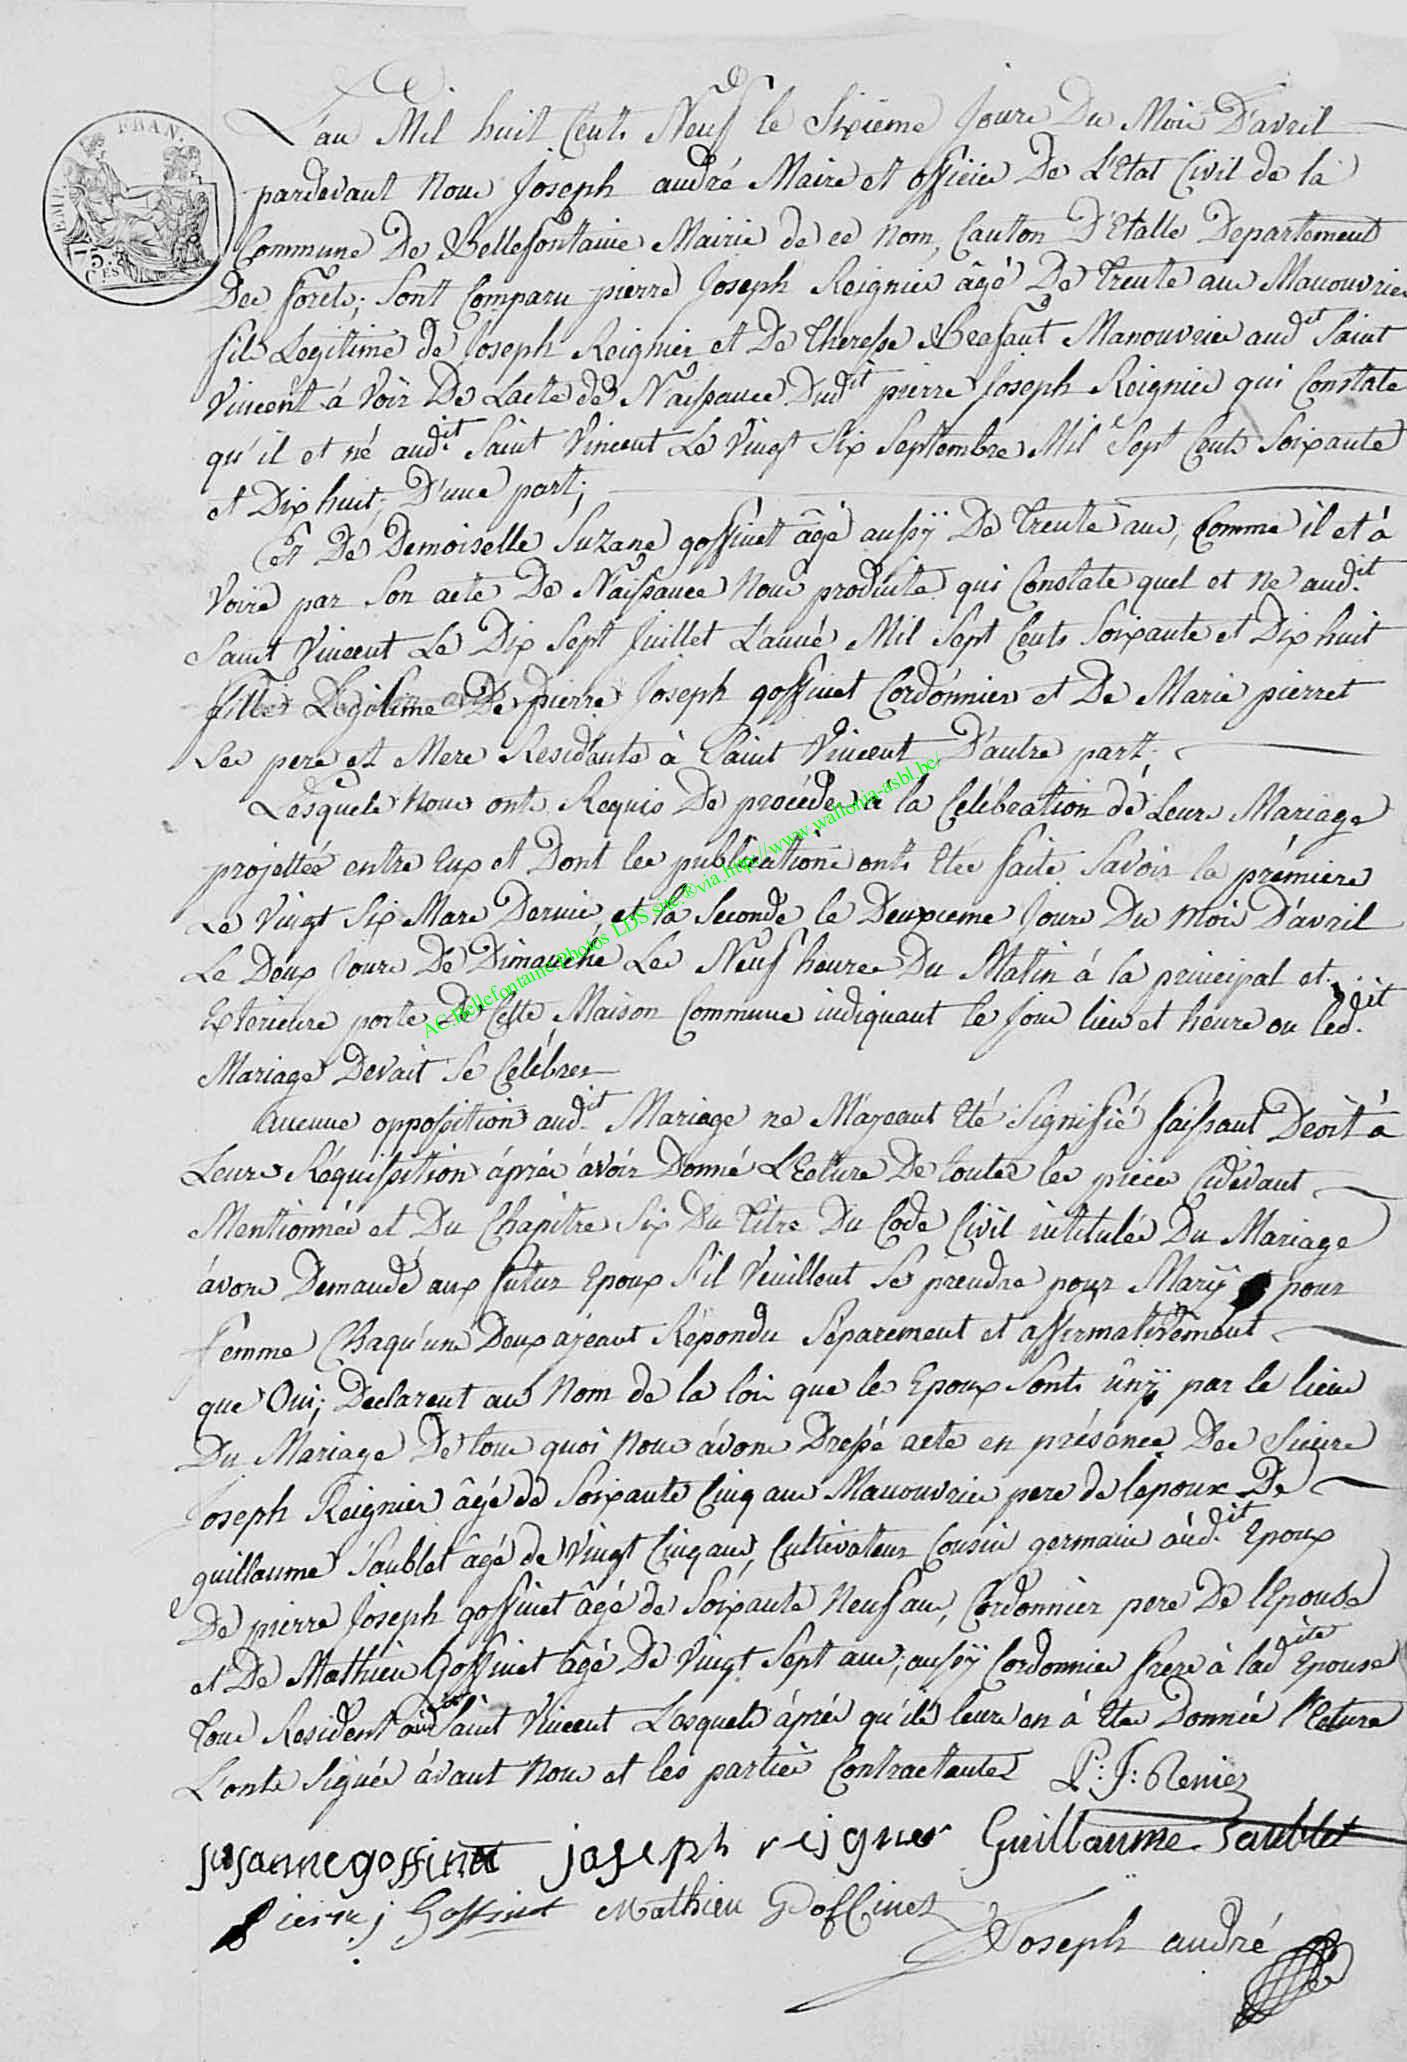 EMP. FRAN.
75. Ces
L'an Mil huit Cents Neuf le Sixieme Jour Du Mois D'avril
pardevant Nous Joseph andré Maire et officier De L'Etat Civil de la
Commune De Bellefontaine Mairie de ce Nom, Canton D'Etalle Departement
Des forets; Sont Comparu pierre Joseph Reignier âgé De trente ans Manouvrier
fils Legitime de Joseph Reignier et De Theresse Manouvrier audit Saint
Vincent á Voir De Lacte de Naissance Dudit pierre Joseph Reignier qui Constate
qu'il et né audit Saint Vincent Le Vingt Six Septembre Mil Sept Cents Soixante
et Dix huit, D'une part;
Et De Demoiselle Suzane goffinet âgé aussÿ De trente ans, Comme il et à
Voire par Son acte De Naissance Nous produite qui Constate quel et ne audit
Saint Vincent Le Dix Sept Juillet L'année Mil Sept Cents Soixante et Dix huit
fille Legitime De pierre Joseph goffinet Cordonnier et De Marie pierret
Ses pere et Mere Residants à Saint Vincent D'autre part.
Lesquels Nous onts Requis De procéder à la Celébration de Leurs Mariage
projettés entre Eux et Dont les publications onts Etée faite Savoir la prémiere
Le Vingt Six Mars Dernier et la Seconde le Deuxieme Jours Du Mois D'avril
Le Deux Jours De Dimanche Les Neuf heures Du Matin á la principal et
Exterieure porte De Cette Maison Commune indiquant le Jour lieu et heure ou ledit
Mariage Devait Se Celébrer
Aucune opposition audit Mariage ne M'ayeant Eté Signifié faissant Droit à
Leurs Réquissition áprés ávoir Donné LEcture De toutes les pieces Cidevant
Mentionnée et Du Chapitre Six Du titre Du Code Civil intitulés Du Mariage
ávons Demandé aux futur Epoux S'il Veuillent Se prendre pour Marÿ et pour
Femme Chaqu'un Deux ayeant Répondu Séparement et affirmativement
que Oui; Declarent au Nom de la loi que les Epoux Sonts ûnÿ par le liens
Du Mariage De tous quoi Nous ávons Dressé acte en présence Des Sieurs
Joseph Reignier âgé de Soixante Cinq ans Manouvrier pere de l'epoux De
guillaume Saublet âgé de Vingt Cinq ans, Cultivateur Cousin germain audit Epoux
De pierre Joseph goffinet âgé de Soixante Neuf ans, Cordonnier pere De l'Epouse
et De Mathieu Goffinet âgé De Vingt Sept ans, aussÿ Cordonnier frere à ladite Epouse
tous Resident audit Saint Vincent Lesquels áprés qu'ils leurs en á Etée Donnée l'Ecture
L'onts Signée ávant Nous et les parties Contractantes P: J: Renier
susanne goffinet joseph reigner Guillaume Saublet
pierre j Goffinet Mathieu Goffinet
Joseph andré
AC.Bellefontaine.Photos LDS site.®via http://www.wallonia-asbl.be/